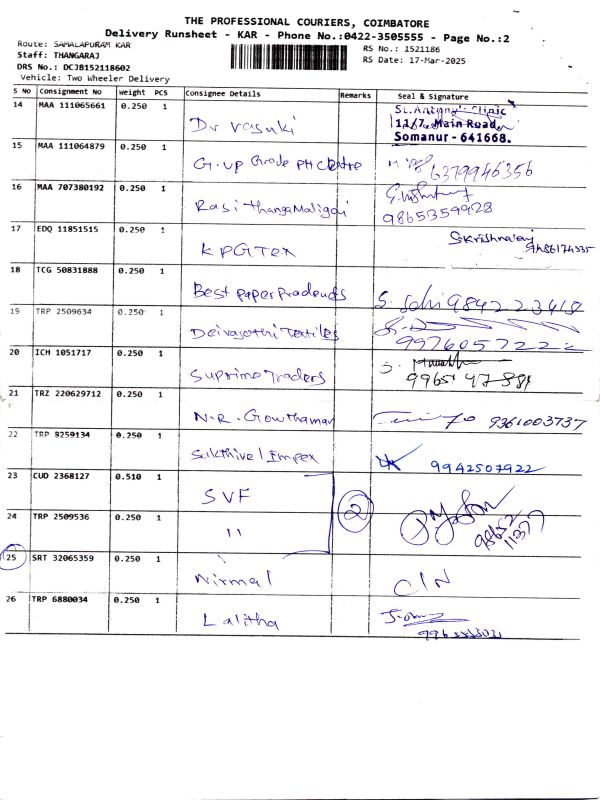 THE PROFESSIONAL COURIERS, COIMBATORE
Delivery Runsheet - KAR - Phone No.:0422-3505555 - Page No.:2
Route: SAMALAPURAM KAR
Staff: THANGARAJ
DRS No.: DCJB152118602
Vehicle: Two Wheeler Delivery
RS No.: 1521186
RS Date: 17-Mar-2025
S No Consignment No Weight PCS Consignee Details Remarks Seal & Signature
14 MAA 111065661 0.250 1 Dr Vasuki Clinic
11/7, Main Road,
Somanur - 641668.
15 MAA 111064879 0.250 1 G-up Grade PH Centre 6379946356
16 MAA 707380192 0.250 1 Rasi thanga Maligai 9865359928
17 EDQ 11851515 0.250 1 KPGTex
18 TCG 50831888 0.250 1 Best paper Prodends 9842223418
19 TRP 2509634 0.250 1 Deivasothi Textiles
20 ICH 1051717 0.250 1 Suprime Traders
21 TRZ 220629712 0.250 1 N.R. Gowthaman 9361003737
22 TRP 8259134 0.250 1 Sakthivel Impex 9942507922
23 CUD 2368127 0.510 1 SVF 2
24 TRP 2509536 0.250 1 "
25 SRT 32065359 0.250 1 Nirmal C/N
26 TRP 6880034 0.250 1 Lalitha